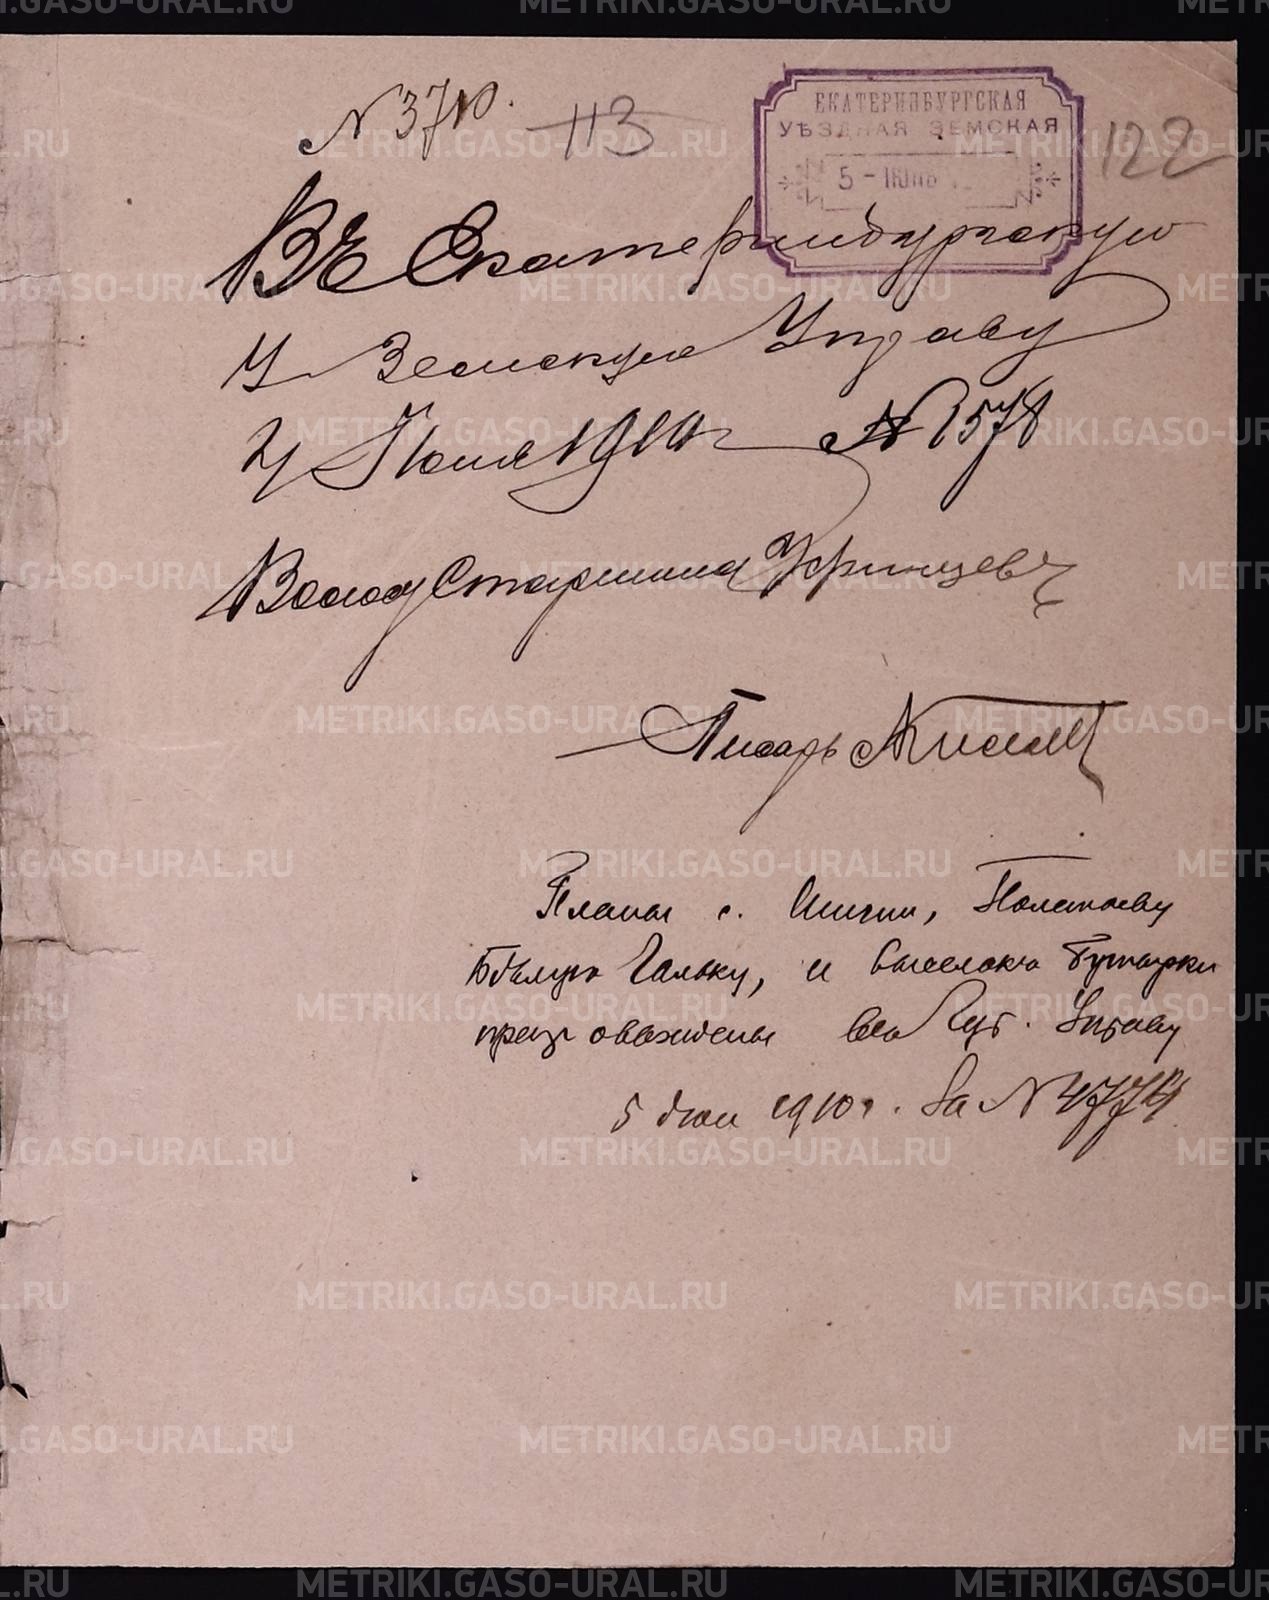 № 3710.
113
ЕКАТЕРИНБУРГСКАЯ
УѢЗДНАЯ ЗЕМСКАЯ
5 - ІЮНЬ
122
Въ Екатеринбургскую
У Земскую Управу
4 Іюня 1910 г № 1578
Волост Старшина
Писарь
Планы с. , Полетаеву
Гальку, и выселокъ Бутырки
препровождены во Губ. Управу
5 Іюн 1910 г. за № 4774
METRIKI.GASO-URAL.RU